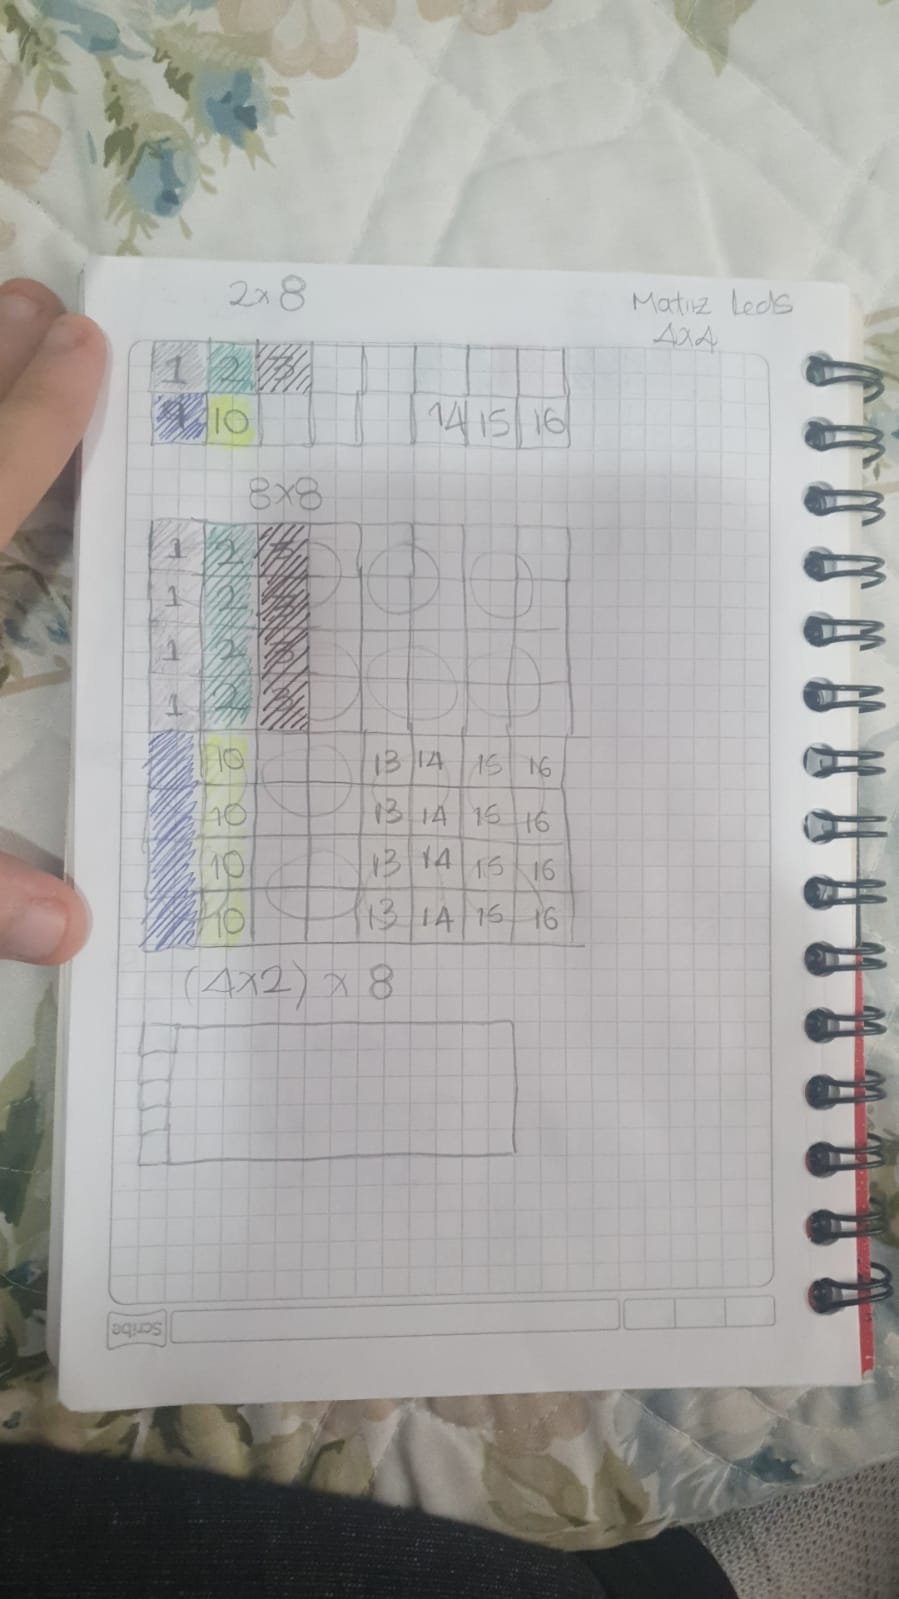 2x8
Matriz Leds
4x4
1 2 3
9 10 14 15 16
8x8
1 2 3
1 2 3
1 2 3
1 2 3
10 13 14 15 16
10 13 14 15 16
10 13 14 15 16
10 13 14 15 16
(4x2) x 8
Scribe